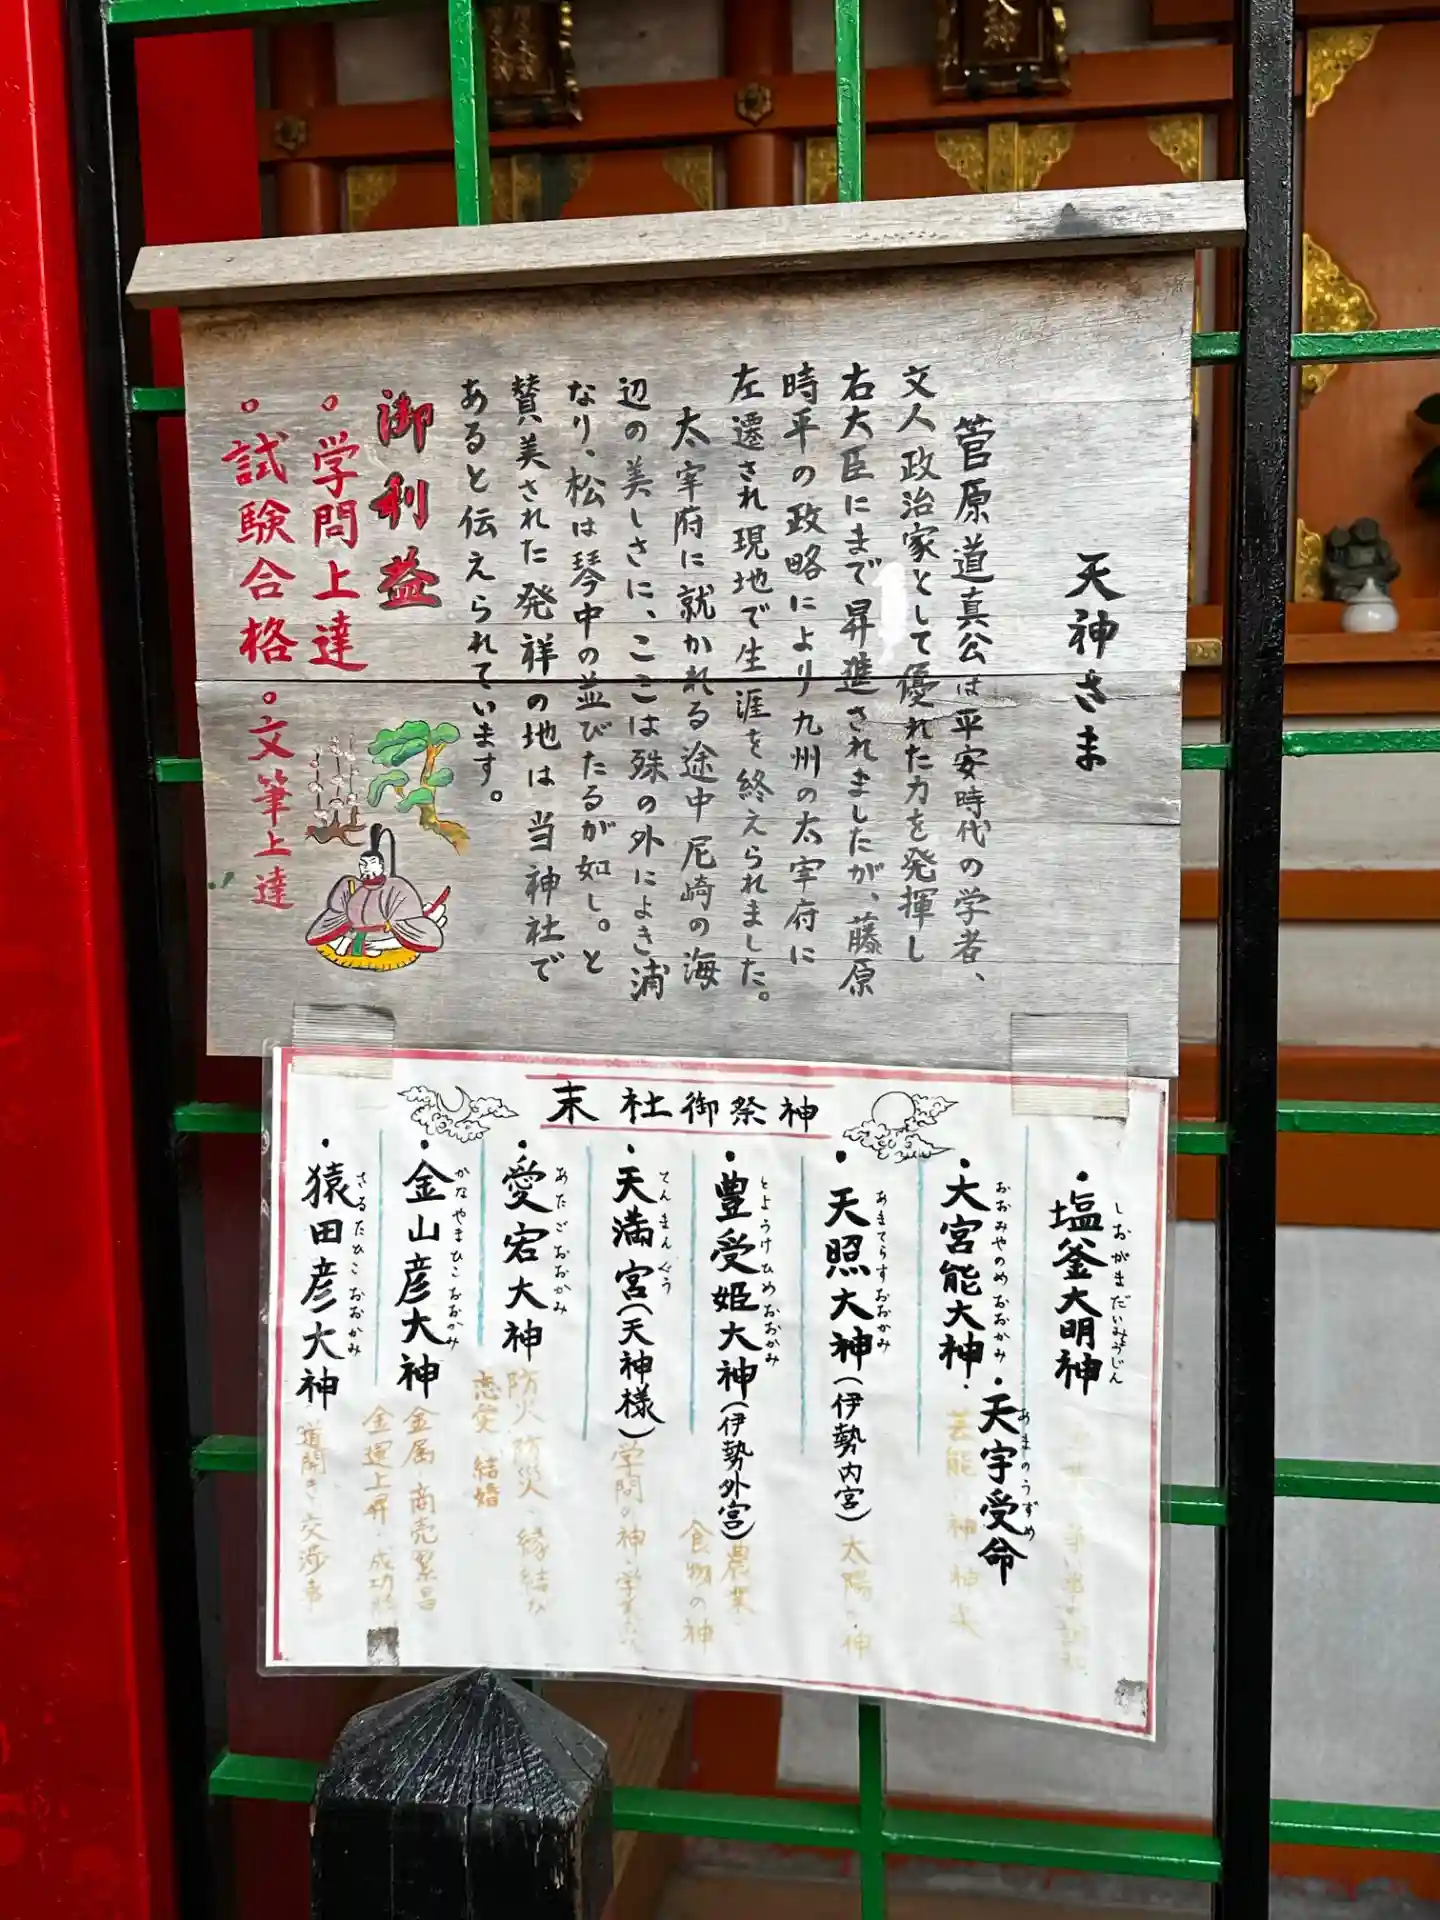 大神
天神さま
菅原道真公は平安時代の学者、
文人政治家として優れた力を発揮し
右大臣にまで昇進されましたが、藤原
時平の政略により九州の太宰府に
左遷され現地で生涯を終えられました。
太宰府に就かれる途中尼崎の海
辺の美しさに、ここは殊の外によき浦
なり、松は琴中の並びたるが如し。と
賛美された発祥の地は当神社で
あると伝えられています。
御利益
。学問上達
。試験合格。文筆上達
末社御祭神
・塩釜大明神
しおがまだいみょうじん
・大宮能大神
おおみやのめおおかみ
・天宇受命
あまのうずめ
芸能の神
・天照大神(伊勢内宮)
あまてらすおおかみ
太陽の神
・豊受姫大神(伊勢外宮)
とようけひめおおかみ
農業
食物の神
・天満宮(天神様)
てんまんぐう
学問の神・学業
・愛宕大神
あたごおおかみ
防火・防災・縁結び
恋愛 結婚
・金山彦大神
かなやまひこおおかみ
金属・商売繁昌
金運上昇・成功
・猿田彦大神
さるたひこおおかみ
道開き・交渉事